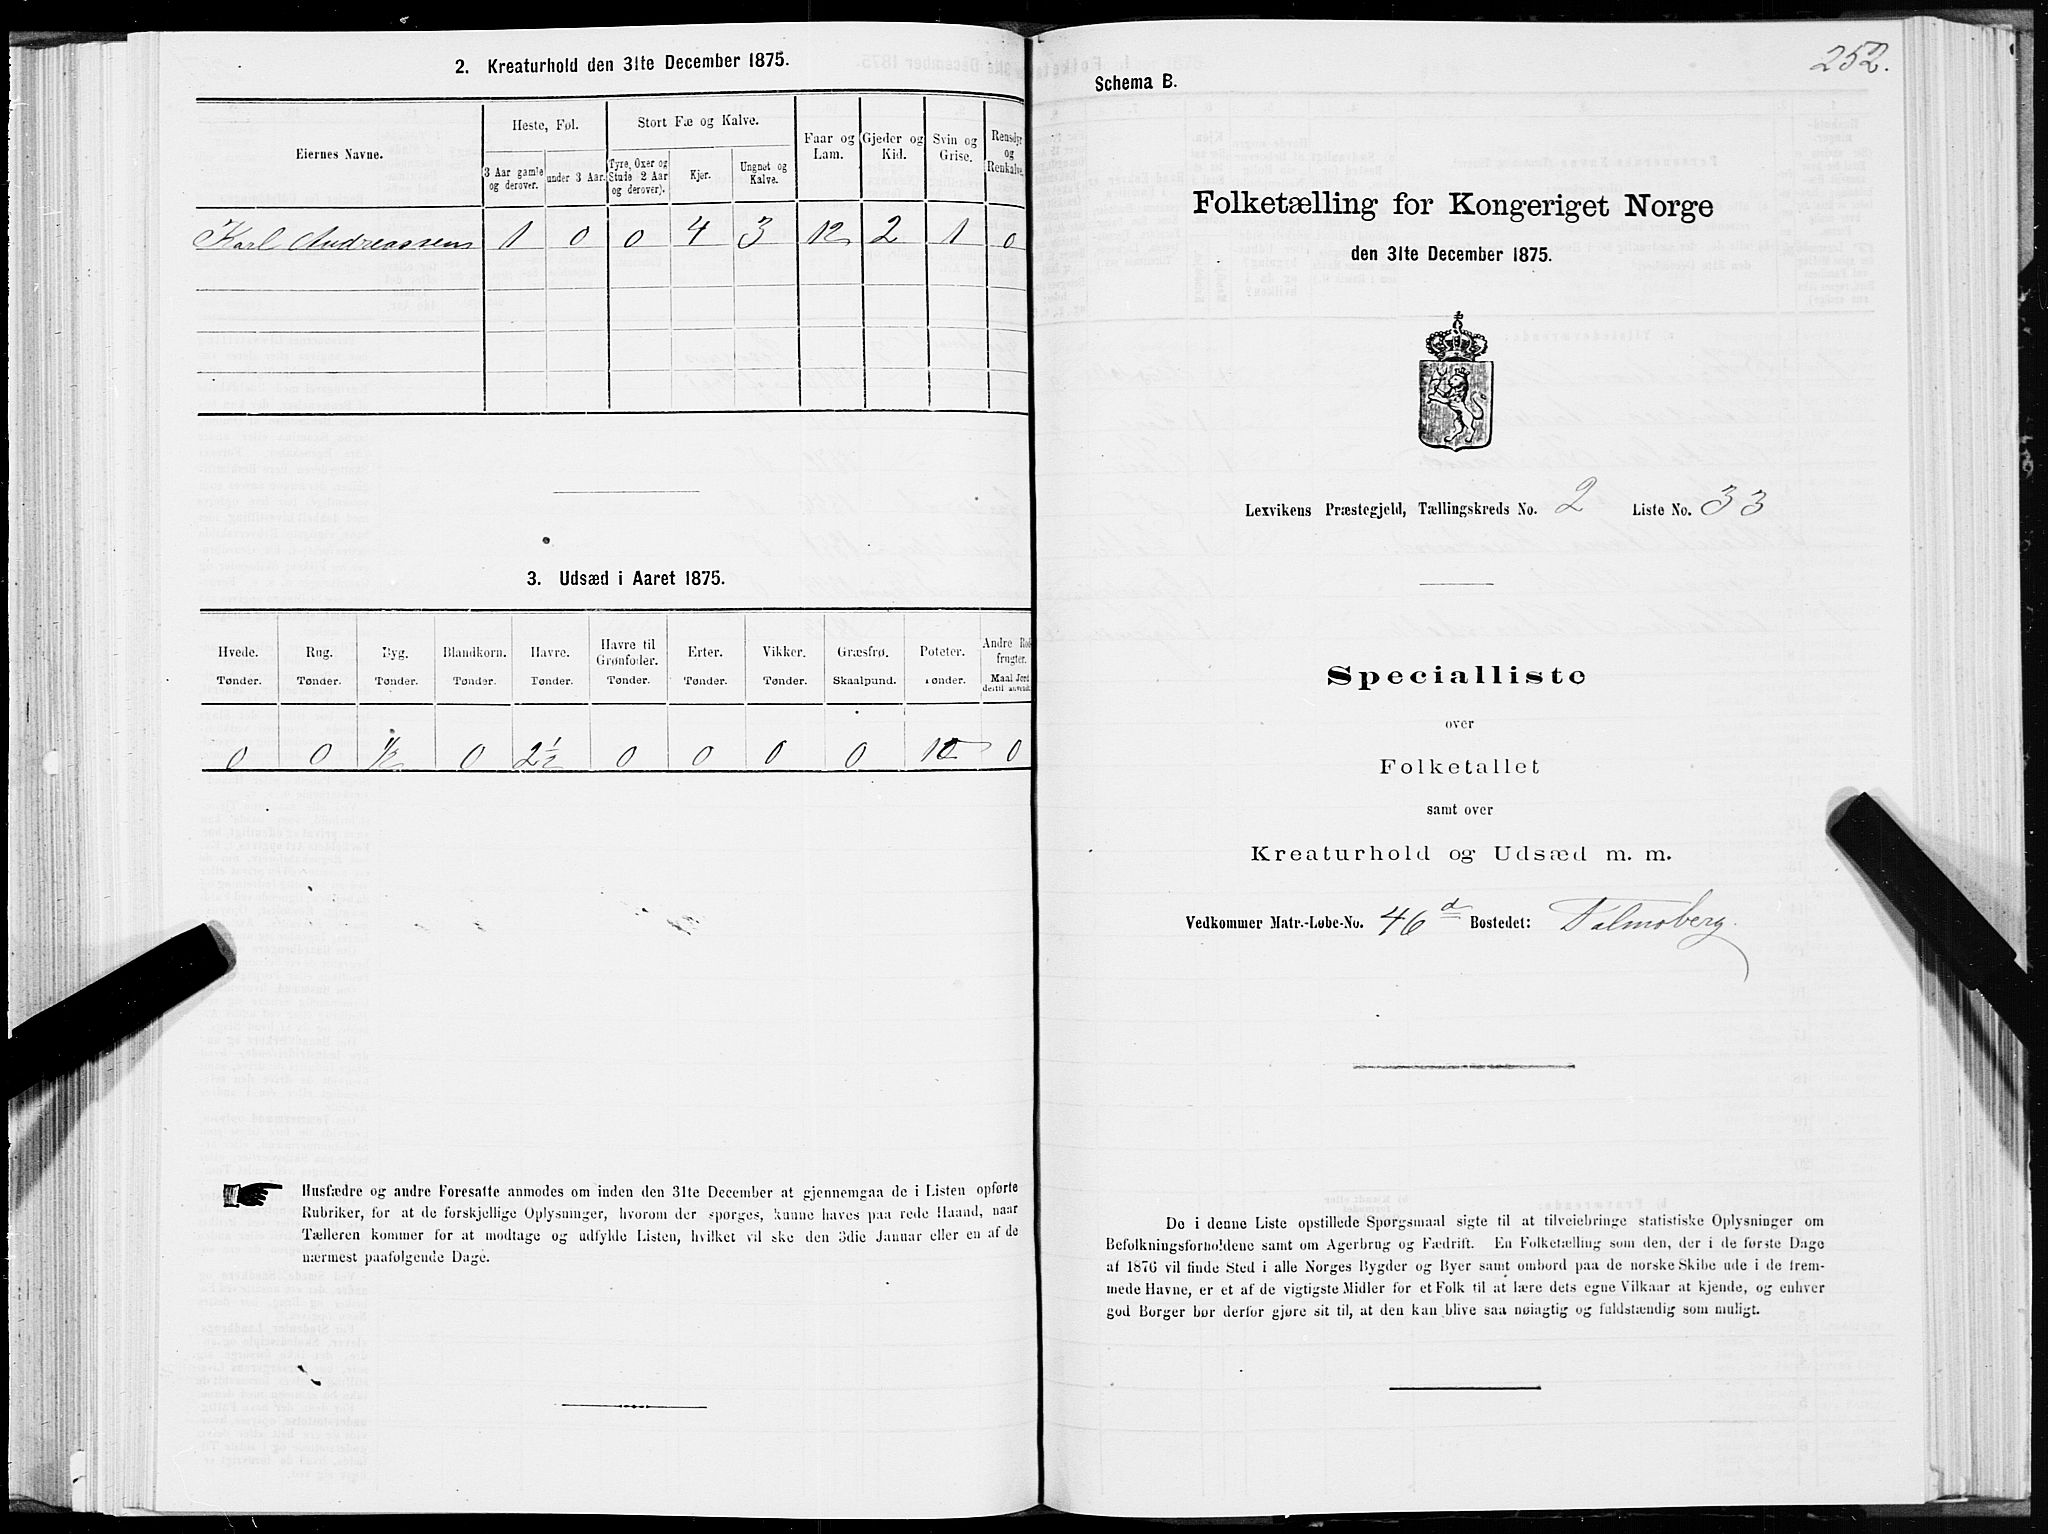 2. Kreaturhold den 31te December 1875.
Eiernes Navne.
Heste, Føl.
Stort Fæ og Kalve.
Faar og Lam.
Gjeder og Kid.
Svin og Grise.
Rensdyr og Renkalve.
3 Aar gamle og derover.
under 3 Aar.
Tyre, Oxer og Stude 2 Aar og derover).
Kjer.
Ungnøt og Kalve.
Karl Andreassen 1 0 0 4 3 12 2 1 0
3. Udsæd i Aaret 1875.
Hvede. Rug. Byg. Blandkorn. Havre. Havre til Grønfoder. Erter. Vikker. Græsfrø. Poteter. Andre Rodfrugter.
Tønder. Tønder. Tønder. Tønder. Tønder. Tønder. Tønder. Tønder. Skaalpund. Tønder. Maal Jord dertil anvendt.
0 0 1/2 0 2 1/2 0 0 0 0 10 0
Husfædre og andre Foresatte anmodes om inden den 31te December at gjennemgaa de i Listen opførte
Rubriker, for at de forskjellige Oplysninger, hvorom der spørges, kunne haves paa rede Haand, naar
Tælleren kommer for at modtage og udfylde Listen, hvilket vil ske den 3die Januar eller en af de
nærmest paafølgende Dage.
252.
Schema B.
Folketælling for Kongeriget Norge
den 31te December 1875.
Lexvikens Præstegjeld, Tællingskreds No. 2 Liste No. 33
Specialliste
over
Folketallet
samt over
Kreaturhold og Udsæd m. m.
Vedkommer Matr.-Løbe-No. 46 d Bostedet: Talmoberg.
De i denne Liste opstillede Spørgsmaal sigte til at tilveiebringe statistiske Oplysninger om
Befolkningsforholdene samt om Agerbrug og Fædrift. En Folketælling som den, der i de første Dage
af 1876 vil finde Sted i alle Norges Bygder og Byer samt ombord paa de norske Skibe ude i de frem-
mede Havne, er et af de vigtigste Midler for et Folk til at lære dets egne Vilkaar at kjende, og enhver
god Borger bør derfor gjøre sit til, at den kan blive saa nøiagtig og fuldstændig som muligt.